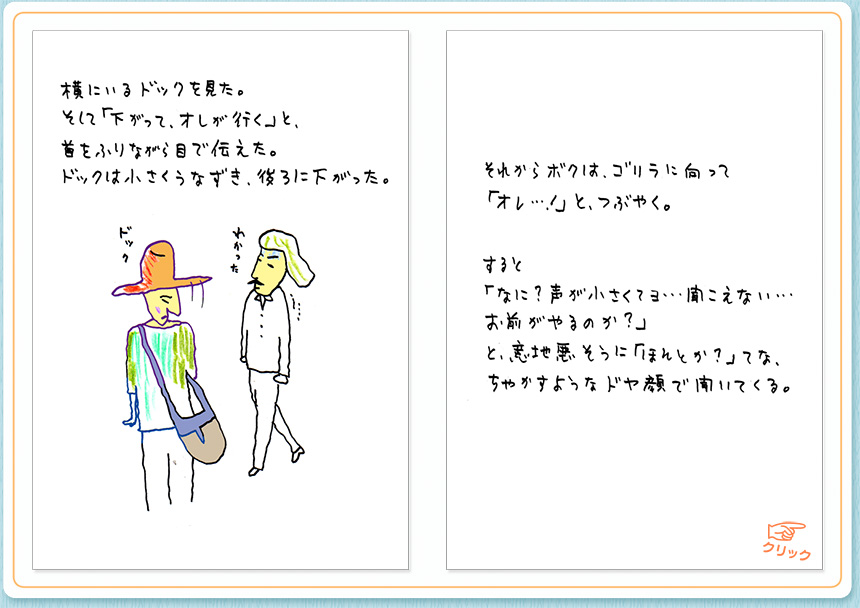 横にいるドックを見た。
そして「下がって、オレが行く」と、
首をふりながら目で伝えた。
ドックは小さくうなずき、後ろに下がった。
ドック
わかった
それからボクは、ゴリラに向って
「オレ…!」と、つぶやく。
すると
「なに?声が小さくてヨ…聞こえない…
お前がやるのか?」
と、意地悪そうに「ほんとか?」てな、
ちゃかすようなドヤ顔で聞いてくる。
クリック